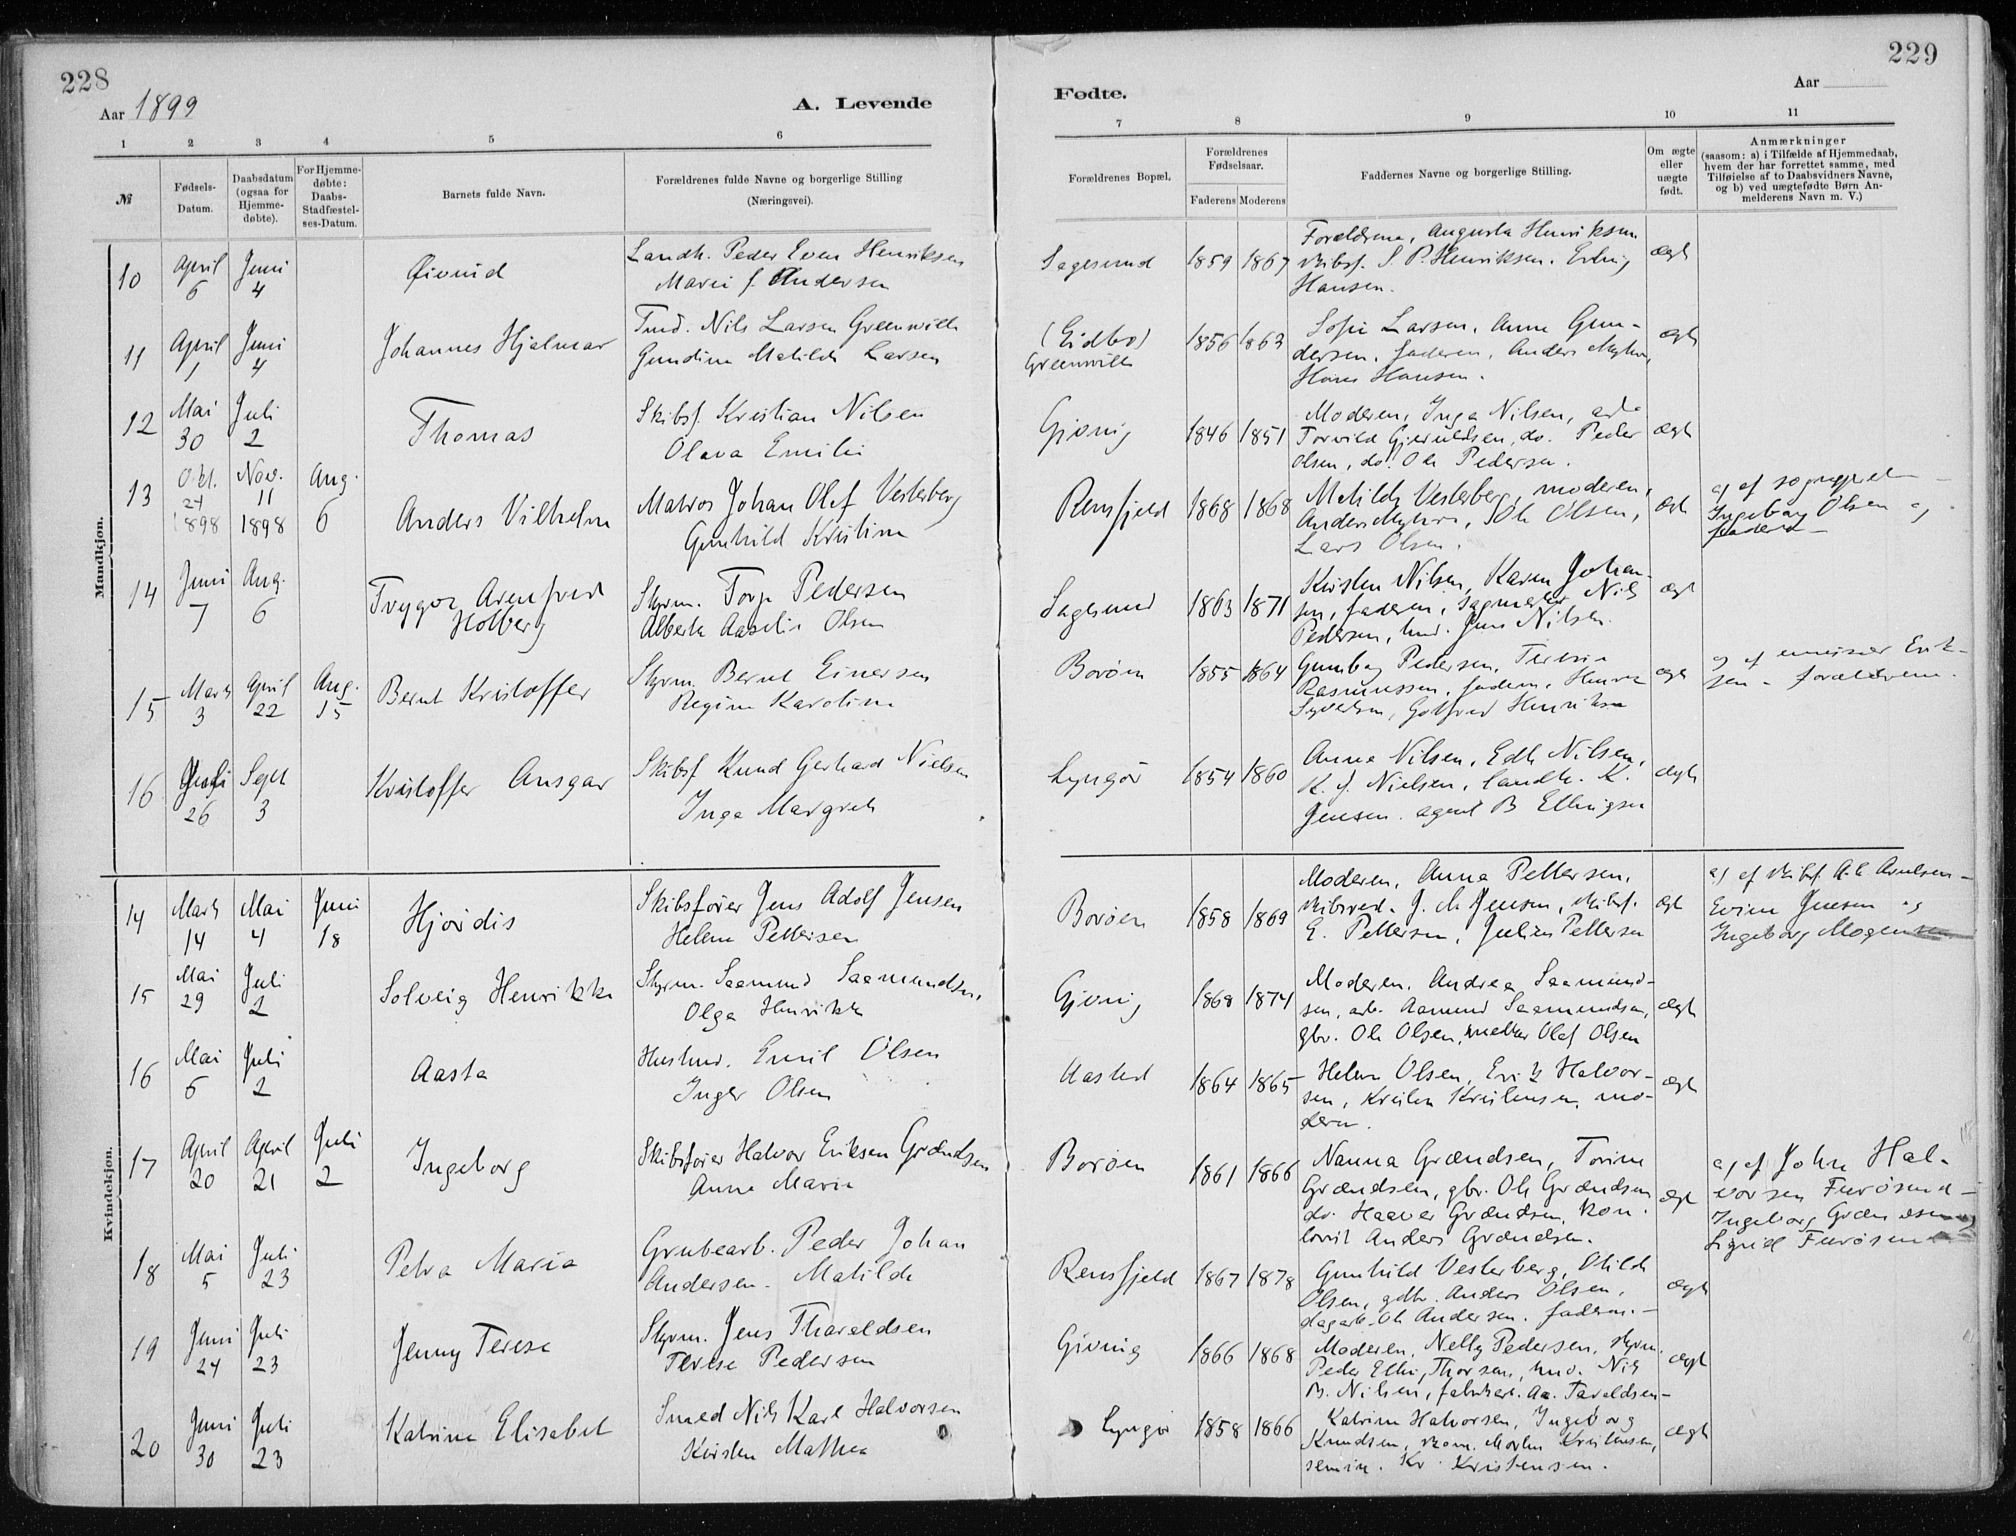 228
Aar 1899
A. Levende
1 2 3 4 5 6
№
Fødsels-
Datum.
Daabsdatum
(ogsaa for
Hjemme-
døbte).
For Hjemme-
døbte:
Daabs-
Stadfæstel-
ses-Datum.
Barnets fulde Navn.
Forældrenes fulde Navne og borgerlige Stilling
(Næringsvei).
Mandkjøn.
10 April 6 Juni 4 Øivind
Landh. Peder Even Henriksen
Marie f. Andersen
11 April 1 Juni 4 Johannes Hjalmar
Tmd. Nils Larsen Greenwill
Gundine Matilde Larsen
12 Mai 30 Juli 2 Thomas
Skibsf. Kristian Nilsen
Olava Emilie
13 Okt. 24 1898 Nov. 11 1898 Aug. 6 Anders Vilhelm
Matros Johan Olaf Vesterberg
Gunhild Kristine
14 Juni 7 Aug. 6 Trygve Arenfred
Holberg
Styrm. Torje Pedersen
Alberte Aaselie Olsen
15 Marts 3 April 22 Aug. 15 Bernt Kristoffer
Styrm. Bernt Einersen
Regine Karoline
16 Juli 26 Sept 3 Kristoffer Ansgar
Skibsf Knud Gerhard Nielsen
Inga Margrete
Kvindekjøn.
14 Marts 14 Mai 4 Juni 18 Hjørdis
Skibsfører Jens Adolf Jensen
Helene Pettersen
15 Mai 29 Juli 2 Solveig Henrikke
Styrm. Saamund Saamundsen
Olga Henrikke
16 Mai 6 Juli 2 Aasta
Husmd. Emil Olsen
Inger Olsen
17 April 20 April 21 Juli 2 Ingeborg
Skibsfører Halvor Eriksen Grændsen
Anne Marie
18 Mai 5 Juli 23 Petra Maria
Grubearb. Peder Johan
Andersen. Matilde
19 Juni 24 Juli 23 Jenny Terese
Styrm. Jens Tharaldsen
Terese Pedersen
20 Juni 30 Juli 23 Katrine Elisabet
Smed Nils Karl Halvorsen
Kirsten Mathea
229
Fødte.
Aar
7 8 9 10 11
Forældrenes Bopæl.
Forældrenes
Fødselsaar.
Faderens Moderens
Faddernes Navne og borgerlige Stilling.
Om ægte
eller
uægte
født.
Anmærkninger
(saasom: a) i Tilfælde af Hjemmedaab,
hvem der har forrettet samme, med
Tilføielse af to Daabsvidners Navne,
og b) ved uægtefødte Børn An-
melderens Navn m. V.)
Sagesund 1859 1867
Forældrene, Augusta Henriksen
skibsf. S. P. Henriksen. Erling
Hansen.
ægt
(Eidbo)
Greenwill 1856 1863
Sofie Larsen, Anne Gun-
dersen, faderen, Anders Myhre,
Hans Hansen.
ægt
Gjeving 1846 1851
Moderen, Inga Nilsen, arb.
Torvild Gjeruldsen, do. Peder
Olsen, do. Ole Pedersen.
ægt
Rensfjeld 1868 1868
Matilde Vesterberg, moderen,
Anders Myhre, Ole Olsen,
Lars Olsen.
ægt
Ingeborg Olsen og
Sagesund 1863 1871
Kirsten Nilsen, Karen Johan-
sen, faderen, sagmester Nils
Pedersen, tmd. Jens Nilsen.
ægt
Borøen 1855 1864
Gunborg Pedersen, Teresie
Rasmussen, faderen, Henrik
Syvertsen, Gotfred Henriksen
ægt
a) af emissær Erik-
sen - forældrene.
Lyngør 1854 1860
Anna Nilsen, Edle Nilsen,
K. J. Nielsen, landh. K.
Jensen. agent B Ellingsen
ægt
Borøen 1858 1869
Moderen, Anna Pettersen,
skibsred. J. M Jensen, skibsf.
E. Pettersen, Julius Pettersen
ægt
a) af skibsf. A. Arnlsen -
Evine Jensen og
Ingeborg Mogensen
Gjeving 1868 1874
Moderen, Andrea Saamund-
sen, arb. Aamund Saamundsen,
gbr. Ole Olsen, Olaf Olsen
ægt
Aasted 1864 1865
Helene Olsen, Erik Halvor-
sen, Kristen Kristensen, mo-
deren.
ægt
Borøen 1861 1866
Nanna Grændsen, Torine
Grændsen, gbr. Ole Grændsen
do. Haaver Grændsen, kon.
lovit Anders Grændsen.
ægt
a) af John Hal-
vorsen Furøsund -
Ingeborg Grændsen og
Sigrid Furøsund
Rensfjeld 1867 1878
Gunhild Vesterberg, Otilde
Olsen, gdbr. Anders Olsen,
dagarb. Ole Andersen. faderen. -
ægt
Gjeving 1866 1868
Moderen, Nelly Pedersen, styrm.
Peder Elli, Thorsen, tmd. Nils
B. Nilsen, fabrikert. Aa. Taraldsen -
ægt
Lyngør 1858 1866
Katrine Halvorsen, Ingeborg
Knudsen, tkom. Morten Kristensen,
semin. Kr. Kristensen.
ægt